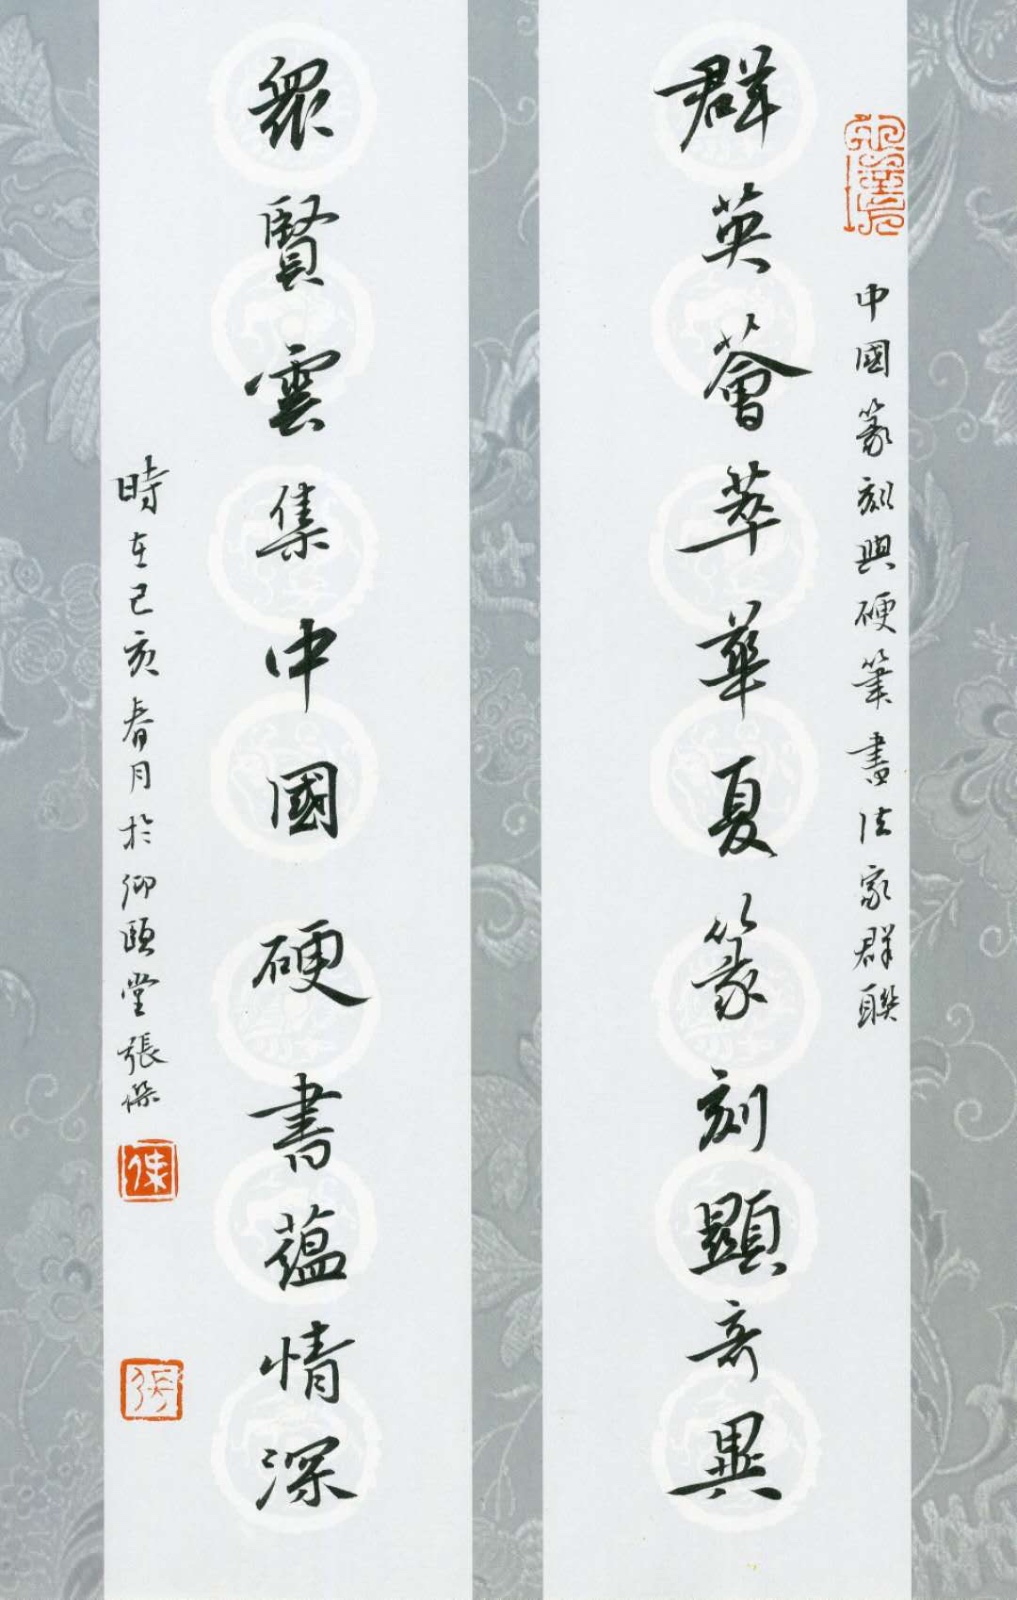 中國篆刻與硬筆書法家群聯
群英薈萃華夏篆刻顯奇異
眾賢雲集中國硬書蘊情深
時在己亥春月於仰頤堂張傑